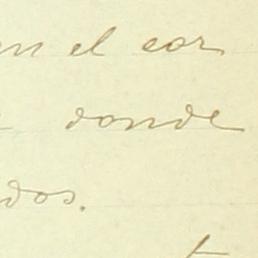 en el cor
donde
dos.